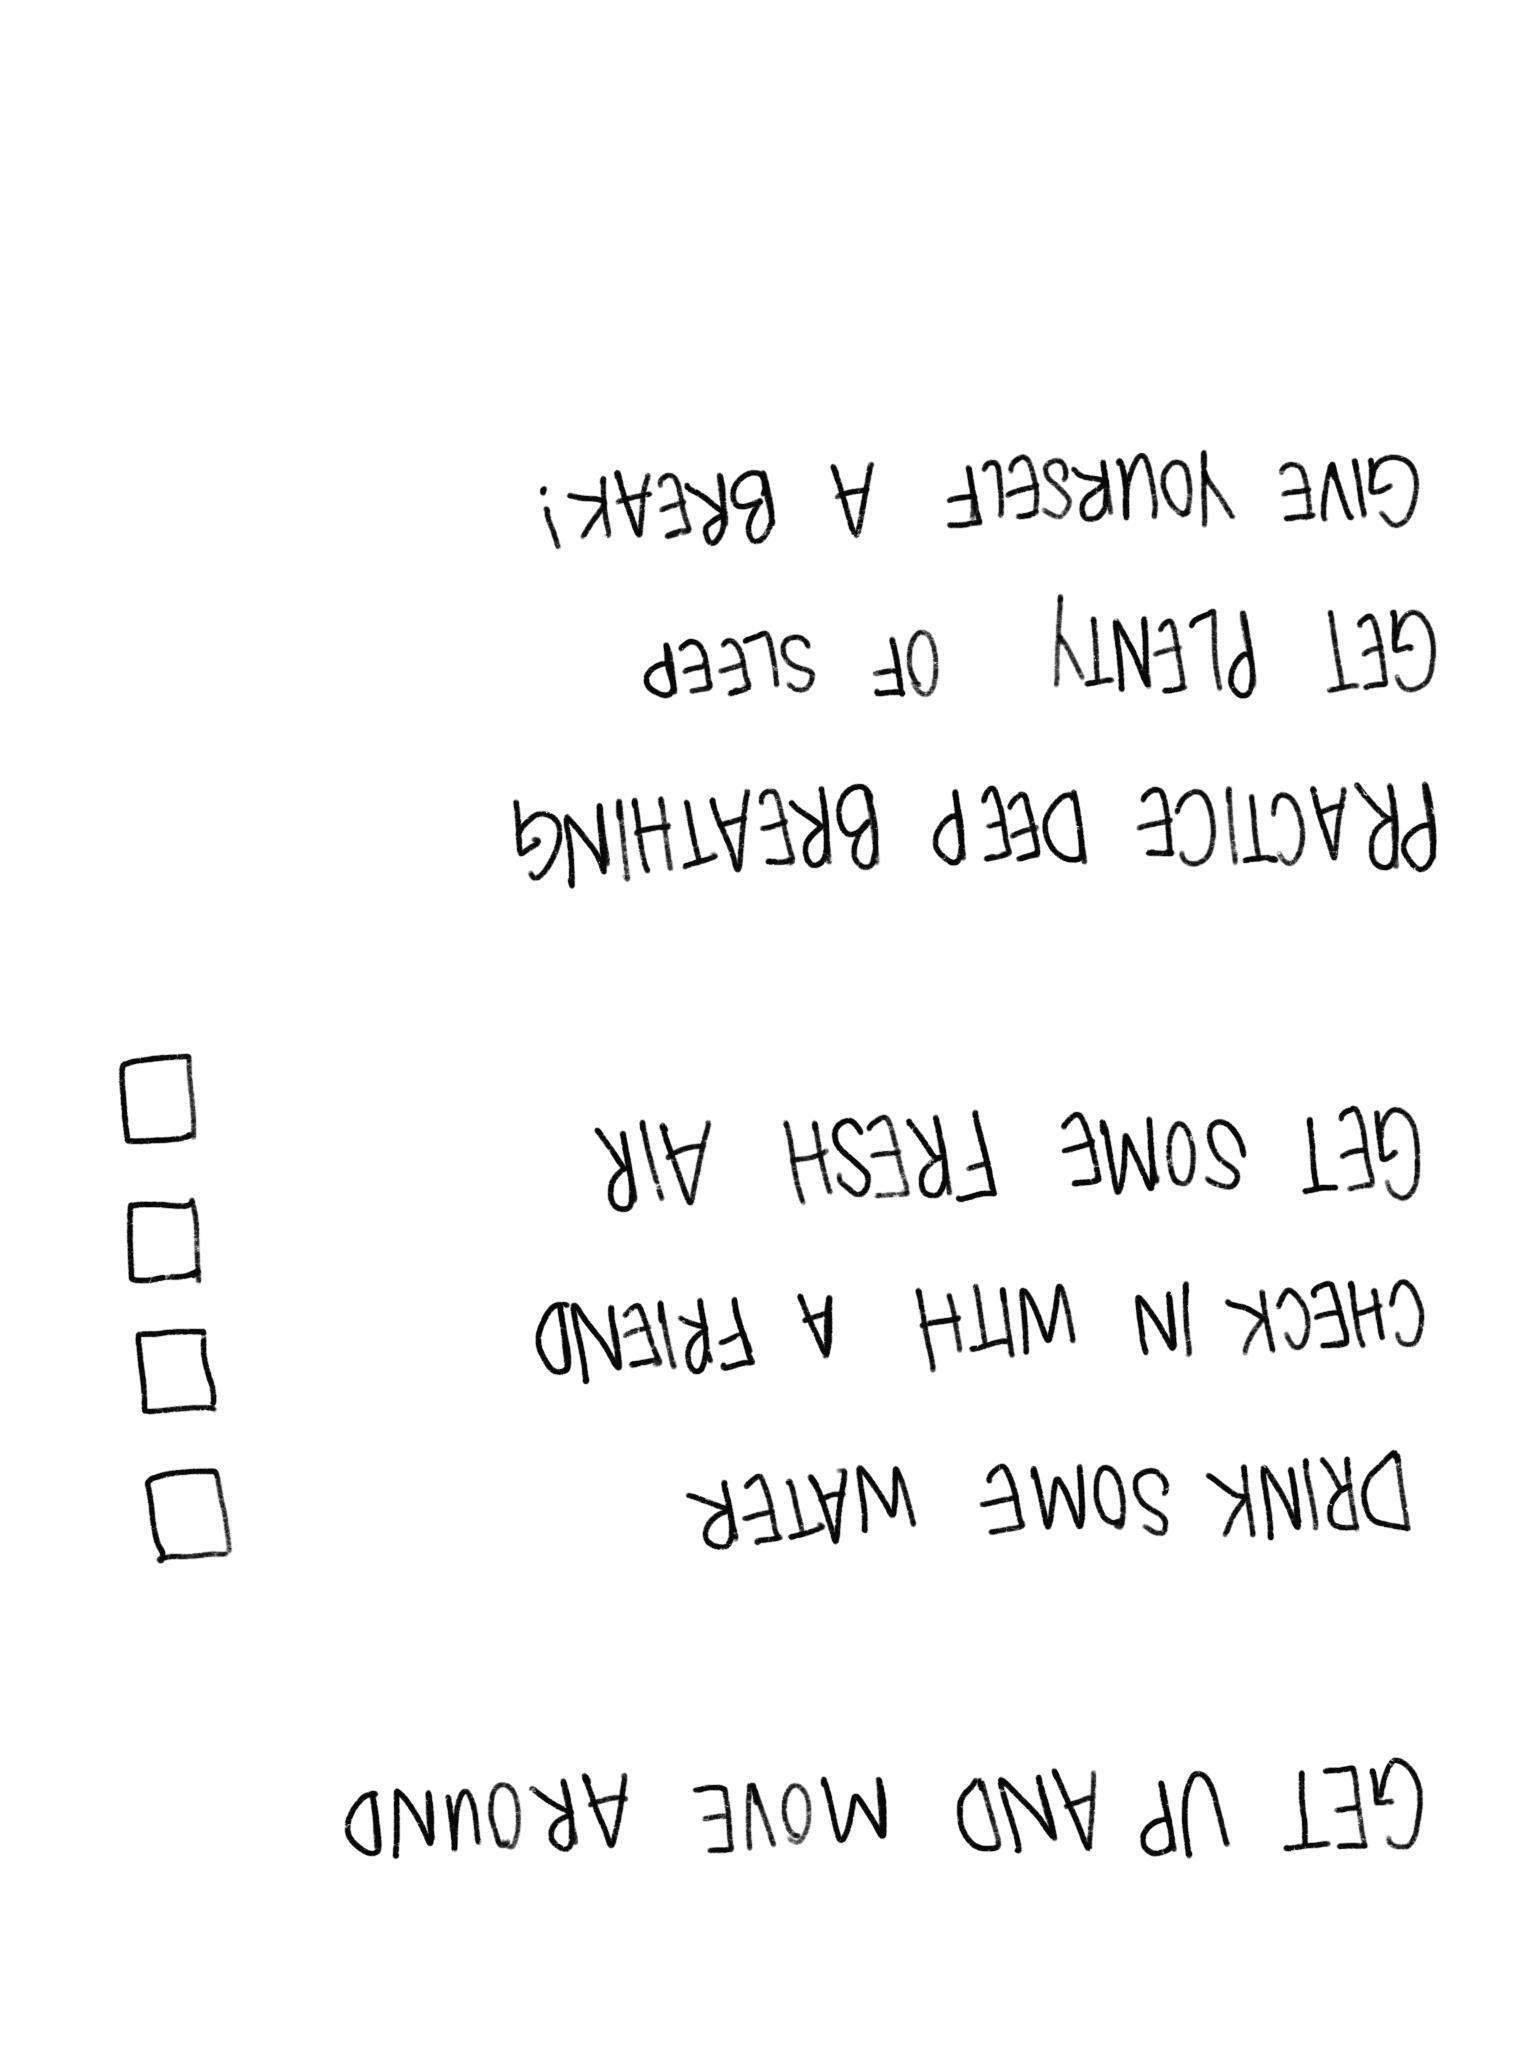 GET UP AND MOVE AROUND
DRINK SOME WATER
CHECK IN WITH A FRIEND
GET SOME FRESH AIR
PRACTICE DEEP BREATHING
GET PLENTY OF SLEEP
GIVE YOURSELF A BREAK!